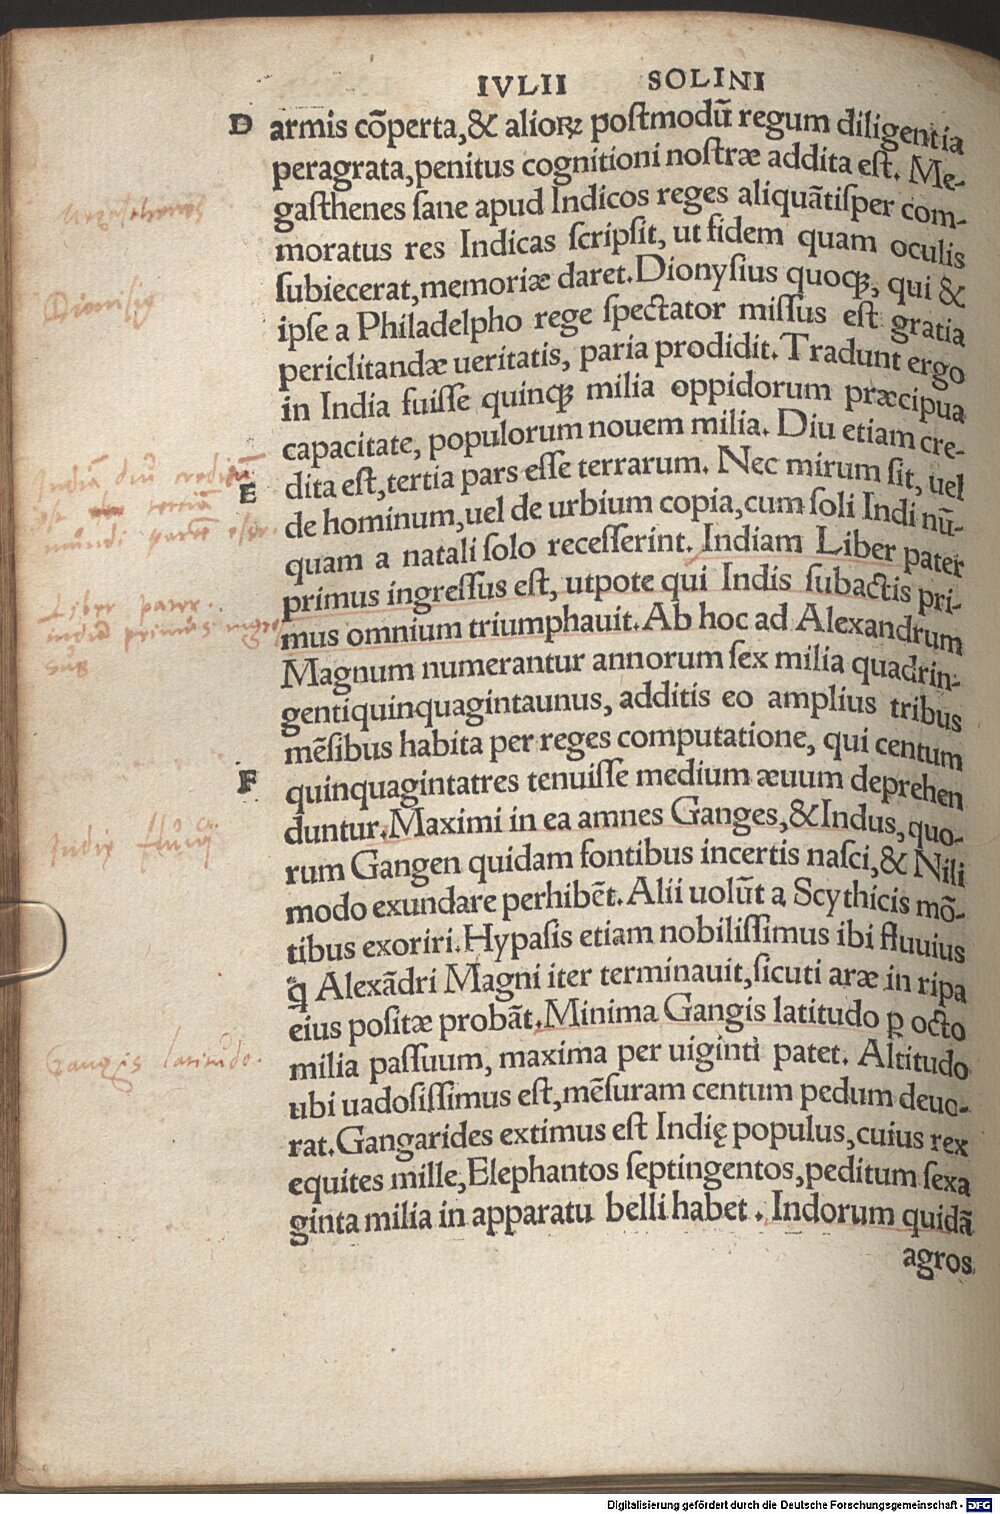 IVLII SOLINI
D armis cõperta,& alioꝝ postmodũ regum diligentia
peragrata,penitus cognitioni nostræ addita est. Me-
gasthenes sane apud Indicos reges aliquãtisper com-
moratus res Indicas scripsit, ut fidem quam oculis
subiecerat,memoriæ daret.Dionysius quoqꝫ, qui &
ipse a Philadelpho rege spectator missus est gratia
periclitandæ ueritatis, paria prodidit.Tradunt ergo
in India fuisse quinqꝫ milia oppidorum præcipua
capacitate, populorum nouem milia. Diu etiam cre-
E dita est,tertia pars esse terrarum. Nec mirum sit, uel
de hominum,uel de urbium copia,cum soli Indi nũ-
quam a natali solo recesserint. Indiam Liber pater
primus ingressus est, utpote qui Indis subactis pri-
mus omnium triumphauit.Ab hoc ad Alexandrum
Magnum numerantur annorum sex milia quadrin-
gentiquinquagintaunus, additis eo amplius tribus
mẽsibus habita per reges computatione, qui centum
F quinquagintatres tenuisse medium æuum deprehen
duntur.Maximi in ea amnes Ganges,&Indus,quo-
rum Gangen quidam fontibus incertis nasci,& Nili
modo exundare perhibẽt.Alii uolũt a Scythicis mõ-
tibus exoriri.Hypasis etiam nobilissimus ibi fluuius
q̃ Alexãdri Magni iter terminauit,sicuti aræ in ripa
eius positæ probãt.Minima Gangis latitudo ꝑ octo
milia passuum, maxima per uiginti patet. Altitudo
ubi uadosissimus est,mẽsuram centum pedum deuo-
rat.Gangarides extimus est Indię populus,cuius rex
equites mille,Elephantos septingentos,peditum sexa
ginta milia in apparatu belli habet . Indorum quidã
agros
Megasthenes
Dionisiꝰ
Indiã diu creditũ
est tertiã
mũndi partẽ esse.
Liber pater
indiã primus ingres
sus
Indię fluuii
Gangis latitudo.
Digitalisierung gefördert durch die Deutsche Forschungsgemeinschaft - DFG